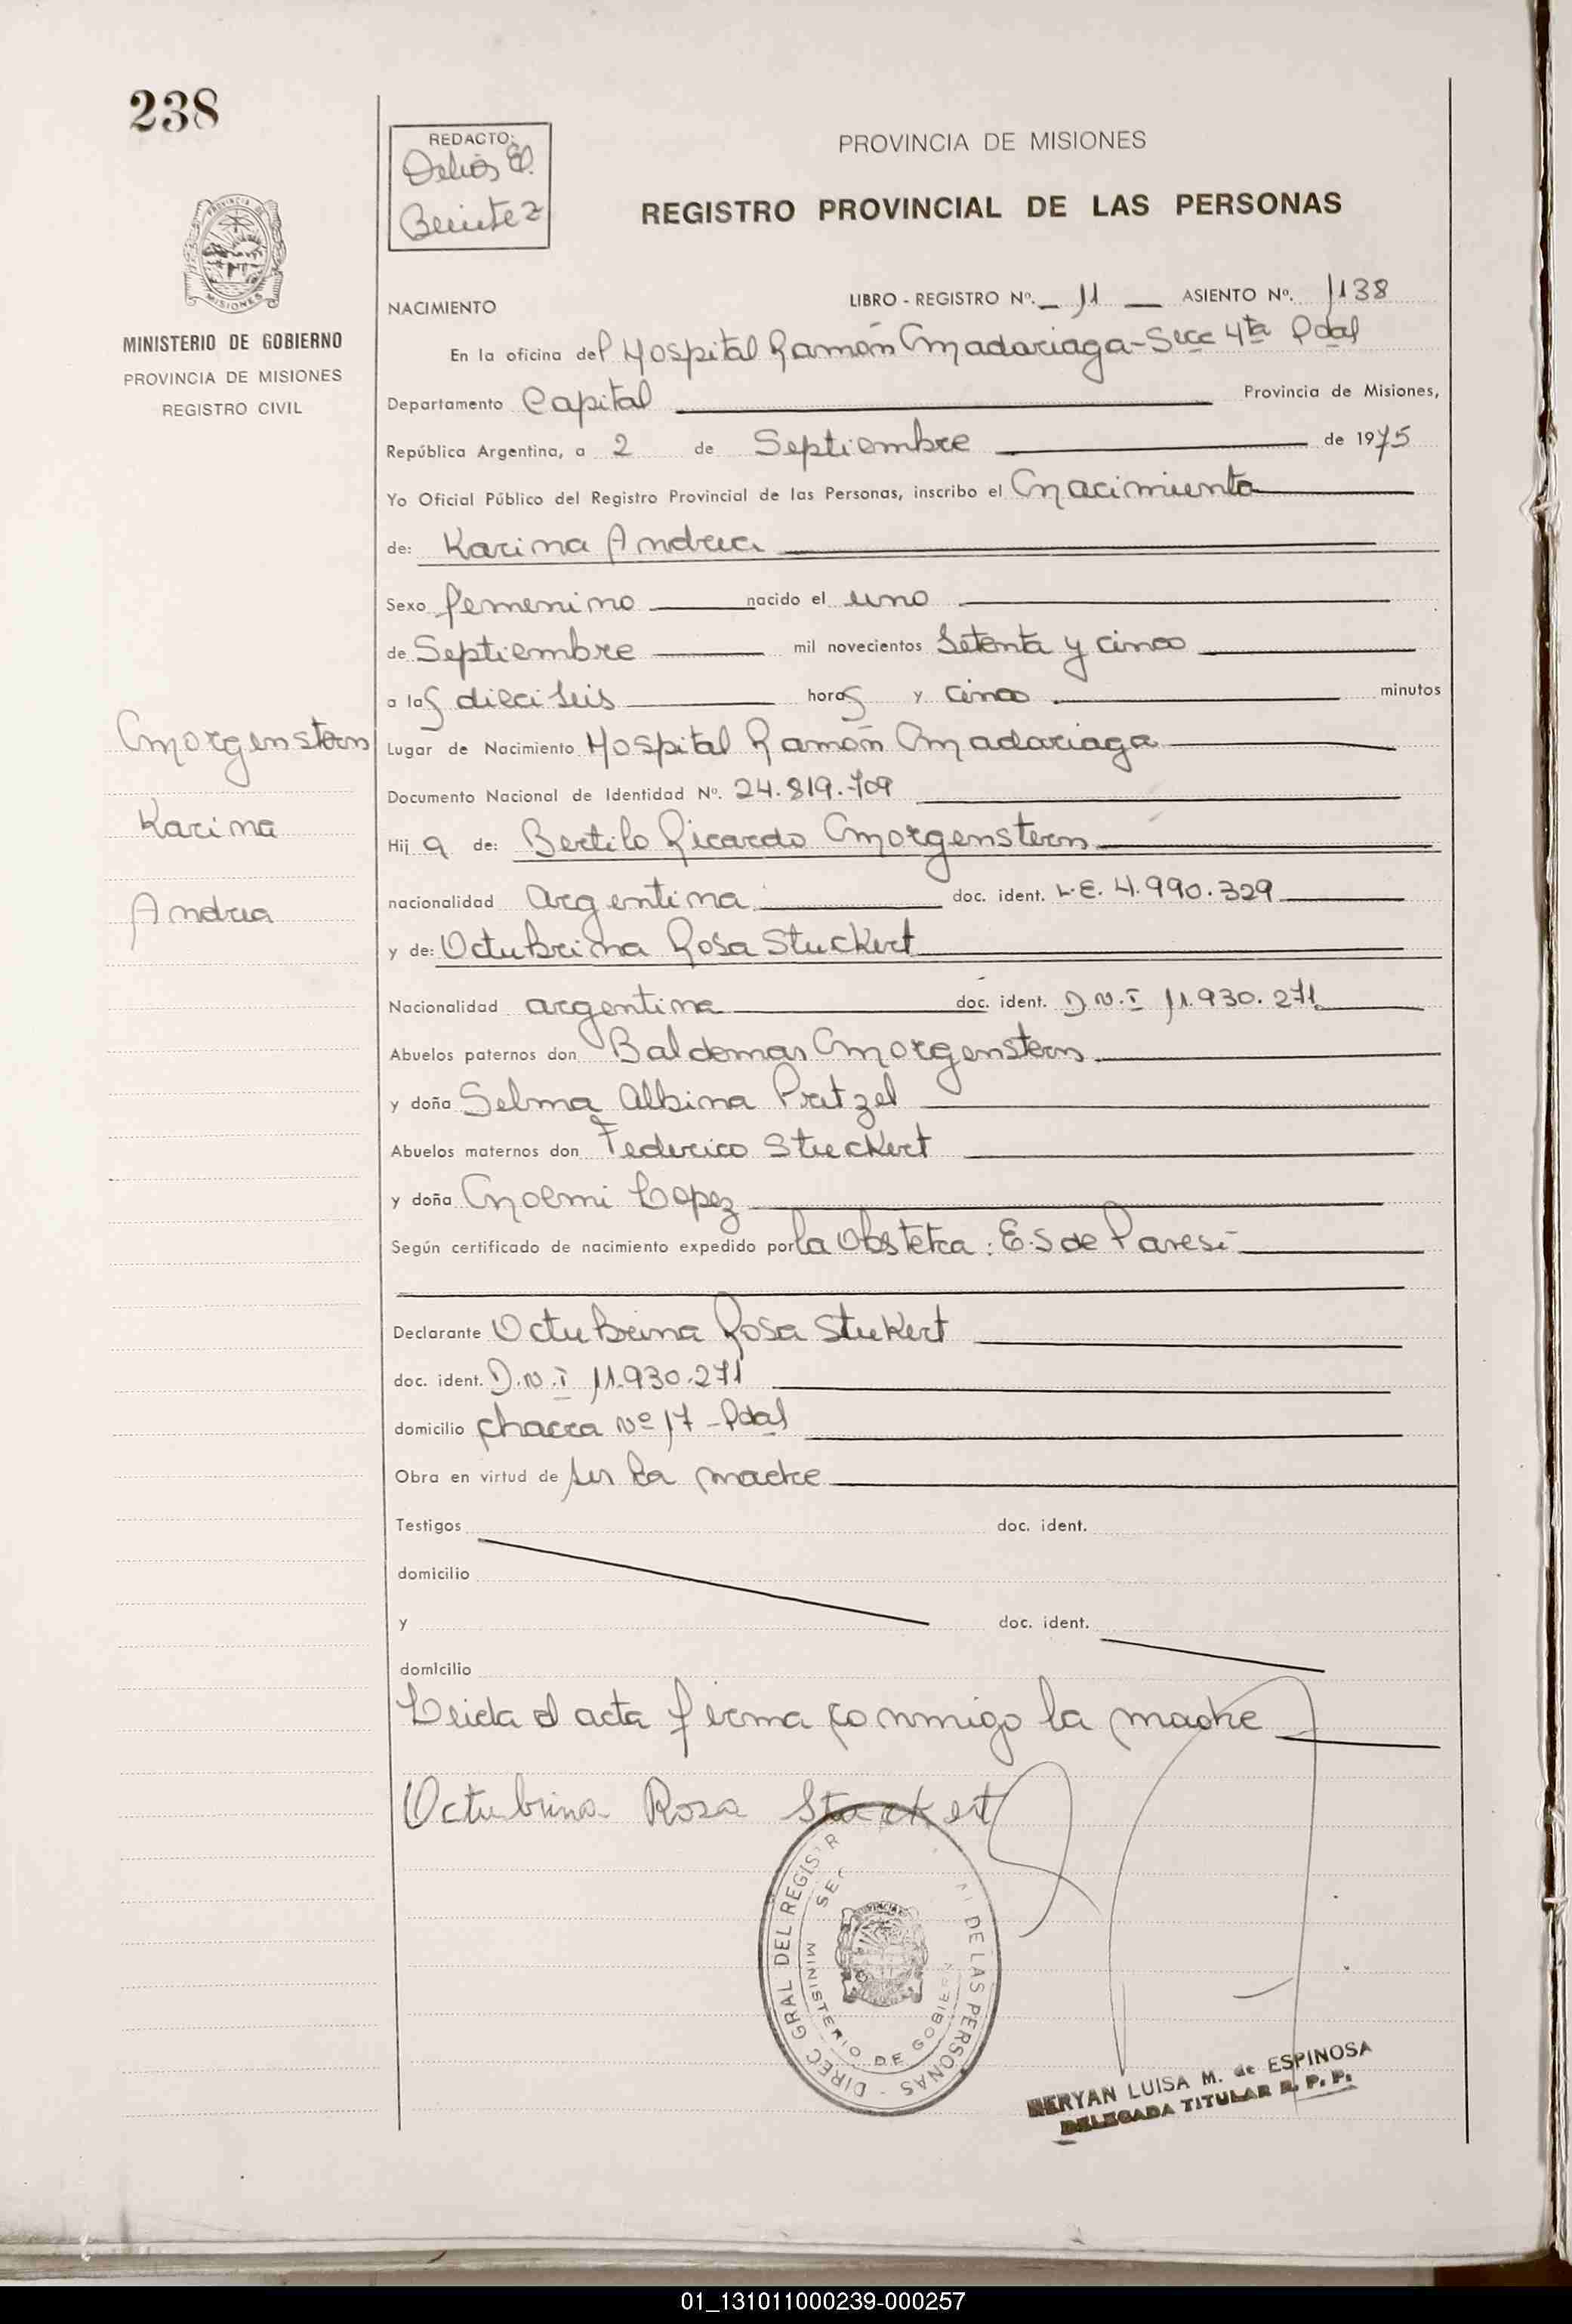 238
REDACTO:
Delios E.
Benitez
PROVINCIA DE MISIONES
REGISTRO PROVINCIAL DE LAS PERSONAS
PROVINCIA DE
MISIONES
MINISTERIO DE GOBIERNO
PROVINCIA DE MISIONES
REGISTRO CIVIL
NACIMIENTO LIBRO - REGISTRO Nº. 11 ASIENTO Nº. 1138
En la oficina del Hospital Ramón Madariaga - Secc 4ta Pdas
Departamento Capital Provincia de Misiones,
República Argentina, a 2 de Septiembre de 1975
Yo Oficial Público del Registro Provincial de las Personas, inscribo el Nacimiento
de: Karina Andrea
Sexo femenino nacido el uno
de Septiembre mil novecientos setenta y cinco
a las dieciseis horas y cinco minutos
Lugar de Nacimiento Hospital Ramón Madariaga
Documento Nacional de Identidad Nº. 24.819.709
Hij a de: Bertilo Ricardo Morgenstern
nacionalidad argentina doc. ident. L.E. 4.990.329
y de: Octubrina Rosa Stuckert
Nacionalidad argentina doc. ident. D.N.I 11.930.271
Abuelos paternos don Baldomar Morgenstern
y doña Selma Albina Pretzel
Abuelos maternos don Federico Stuckert
y doña Noemi Lopez
Según certificado de nacimiento expedido por la Obstetra: E.S de Paresi
Declarante Octubrina Rosa Stukert
doc. ident. D.N.I 11.930.271
domicilio chacra Nº 17 - Pdas
Obra en virtud de ser la madre
Testigos doc. ident.
domicilio
y doc. ident.
domicilio
Leida el acta firma conmigo la madre
Octubrina Rosa Stuckert
Morgenstern
Karina
Andrea
DIREC GRAL DEL REGISTR DE LAS PERSONAS
MINISTERIO DE GOBIERN
NERYAN LUISA M. de ESPINOSA
DELEGADA TITULAR R. P. P.
01_131011000239-000257